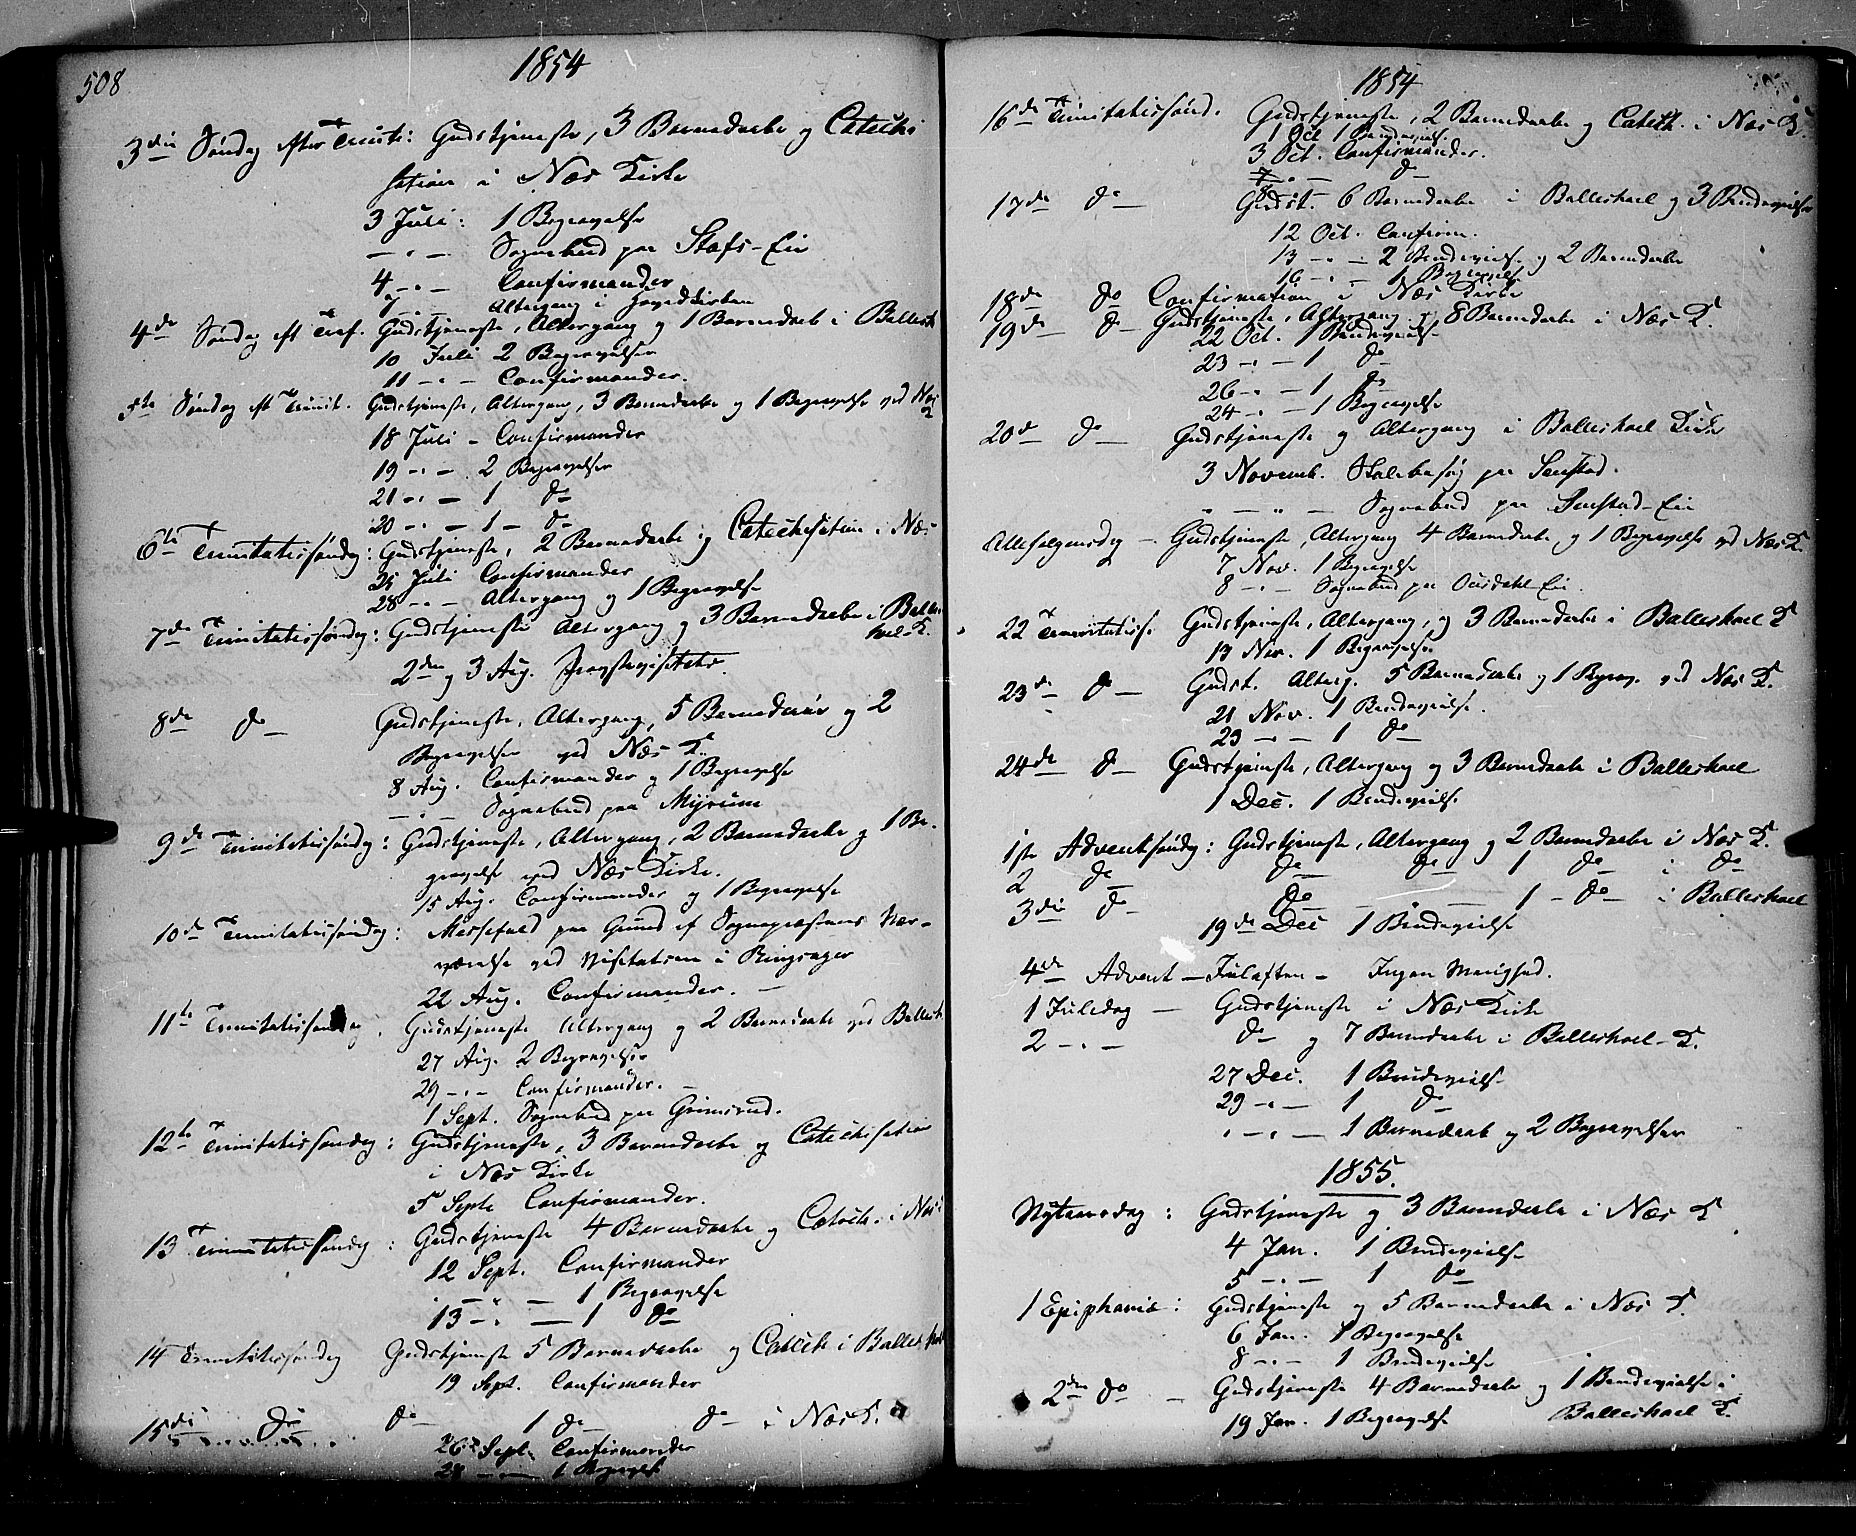 508
1854
3die Søndag efter Trinit: Gudstjeneste, 3 Barnedaabe og Catechi
sation i Næs Kirke
3 Juli: 1 Begravelse
— " — Sognebud paa Stafs-Eie
4 — " — Confirmander
7 — Altergang i Hovedkirken
4de Søndag eft Tref. Gudstjeneste, Altergang og 1 Barnedaab i Ballesh
10 Juli 2 Begravelser
11 — " — Confirmander.
5te Søndag eft Trinit. Gudstjeneste, Altergang, 3 Barnedaabe og 1 Begravelse ved Næs
K
18 Juli — Confirmander
19 — " — 2 Begravelser
21 — " — 1 do
20 — " — 1 — do
6te Trinitatissøndag: Gudstjeneste, 2 Barnedaabe og Catechisation i Næs
25 Juli Confirmander
28 — " — Altergang og 1 Begravelse
7de Trinitatissøndag: Gudstjeneste Altergang og 3 Barnedaabe i Balles
hoel K.
2den og 3 Aug. Provstevisitats.
8de do Gudstjeneste, Altergang, 5 Barnedaab og 2
Begravelser ved Næs K.
8 Aug. Confirmander og 1 Begravelse
— " — Sognebud paa Myrum
9de Trinitatissøndag: Gudstjeneste, Altergang, 2 Barnedaabe og 1 Be-
gravelse ved Næs Kirke.
15 Aug. Confirmander og 1 Begravelse
10de Trinitatissøndag: Messefald paa Grund af Sognepræstens Nær-
værelse ved Visitatsen i Ringsager
22 Aug. Confirmander. —
11te Trinitatissøndag. Gudstjeneste Altergang og 2 Barnedaabe ved Ballesh
27 Aug. 2 Begravelser
29 — " — Confirmander. —
1 Sept. Sognebud paa Grimsrud.
12te Trinitatissøndag: Gudstjeneste, 3 Barnedaabe og Catechisation
i Næs Kirke
5 Septe Confirmander.
13 Trinitatissøndag: Gudstjeneste 4 Barnedaabe og Catech. i Næs
12 Sept. Confirmander
" — " — 1 Begravelse
13 — " — 1 do
14 Trinitatissøndag Gudstjeneste 5 Barnedaabe og Catech i Balleshoel
19 Sept. Confirmander
15de do do 1 do do i Næs K.
26 Sept. Confirmander
28 — " — 1 Begravelse
1854
16de Trinitatissønd. Gudstjeneste, 2 Barnedaabe og Catech. i Næs K.
1 Oct 1 Brudevielse
3 Oct. Confirmander.
8 — " — do
17de do — Gudst. 6 Barnedaabe i Balleshoel og 3 Brudevielser
12 Oct. Confirm.
13 — " — 2 Brudevielse og 2 Barnedaabe
16 — " — 1 Begravelse
18de do Confirmation i Næs Kirke
19de do — Gudstjeneste, Altergang og 8 Barnedaabe i Næs K.
22 Oct. 1 Brudevielse
23 — " — 1 do
26 — " — 1 do
24 — " — 1 Begravelse
20de do — Gudstjeneste og Altergang i Balleshoel Kirke
3 Novemb. Skolebesøg paa Senstad.
" — " — Sognebud paa Senstad-Eie
Allehelgensdag — Gudstjeneste, Altergang 4 Barnedaabe, og 1 Begravelse ved Næs K.
7 Nov. 1 Begravelse
8 — " — Sognebud paa Eie.
22 Trinitatiss. Gudstjeneste, Altergang, og 3 Barnedaabe i Balleshoel K
13 Nov. 1 Begravelse
23de do — Gudst. Alterg. 5 Barnedaabe og 1 Begrav. ved Næs K.
21 Nov. 1 Brudevielse.
23 — " — 1 do
24de do — Gudstjeneste, Altergang og 3 Barnedaabe i Balleshoel
1 Dec. 1 Brudevielse
1ste Adventsøndag: Gudstjeneste, Altergang og 2 Barnedaabe i Næs K.
2 do do do 1 do i do
3die do do — " — 1 — do i Balleshoel
19de Dec 1 Brudevielse
4de Advent — Juleaften — Ingen Menighed.
1 Juledag — Gudstjeneste i Næs Kirke
2 — " — do og 7 Barnedaabe i Balleshoel-K.
27 Dec. 1 Brudevielse
29 — " — 1 do
" — " — 1 Barnedaab og 2 Begravelser
1855.
Nytaarsdag: Gudstjeneste og 3 Barnedaabe i Næs K
4 Jan. 1 Brudevielse
5 — " — 1 do
1 Epiphanie: Gudstjeneste og 5 Barnedaabe i Næs K.
6 Jan. 1 Begravelse
8 — " — 1 Brudevielse
2den do — Gudstjeneste 4 Barnedaabe og 1 Brudevielse i
Balleshoel K.
19 Jan. 1 Begravelse